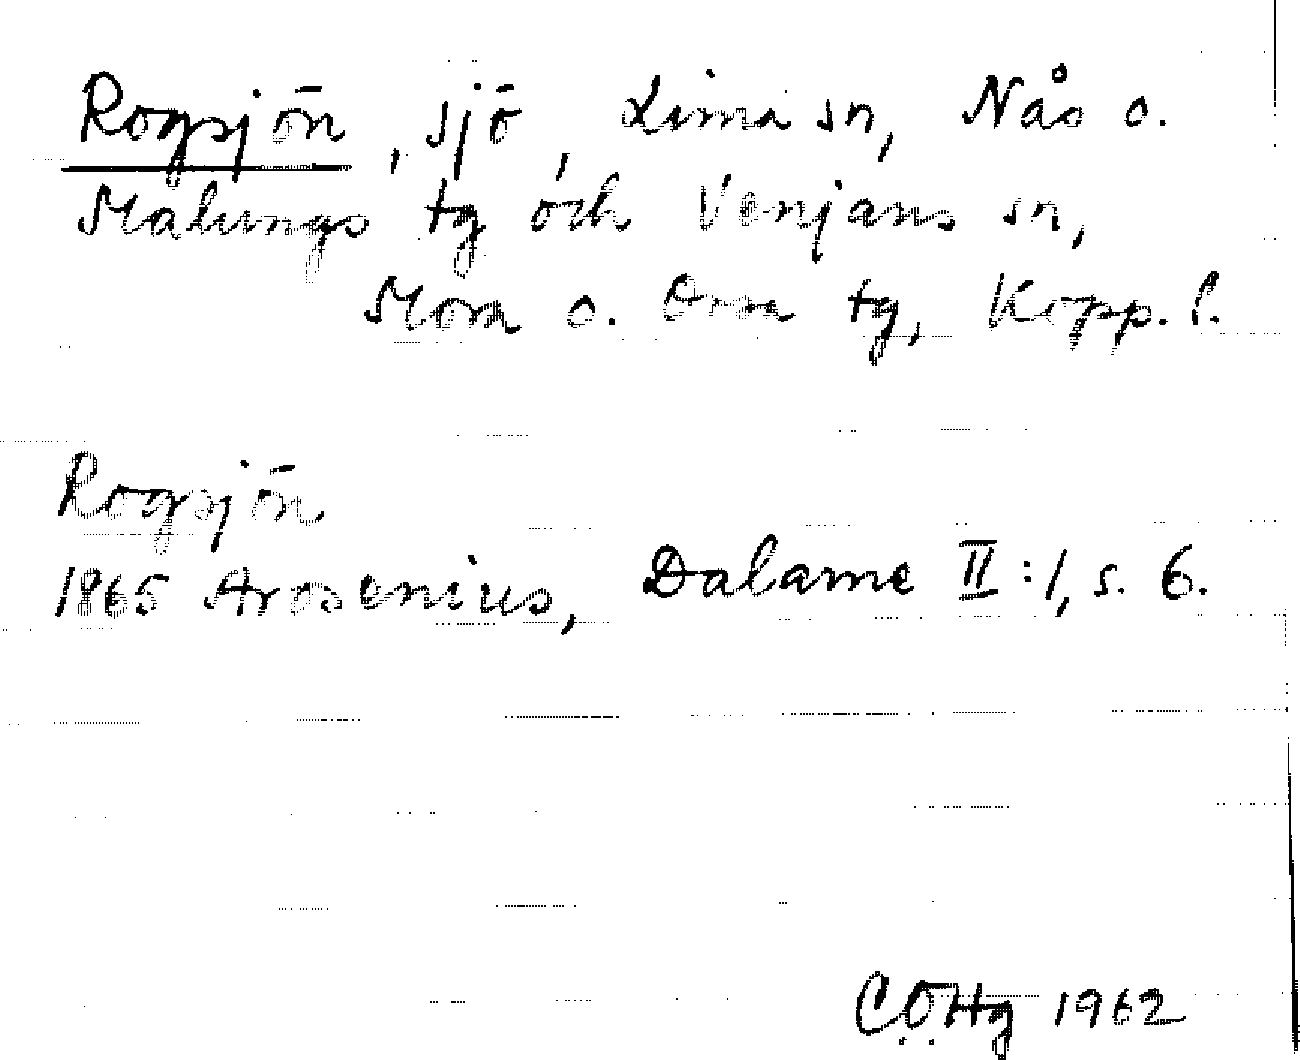 Rogsjön, sjö, Lima sn, Nås o.
Malungs tg och Venjans sn,
Mora o. Orsa tg, Kopp. l.
Rogsjön
1865 Arosenius, Dalarne II:1, s. 6.
CÖHg 1962